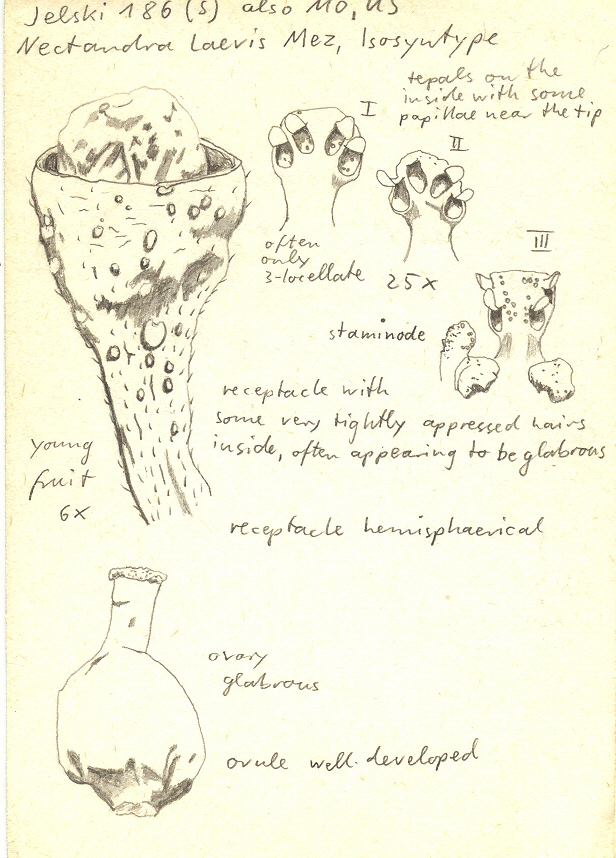 Jelski 186 (S) also MO, US
Nectandra Laevis Mez, Isosyntype
tepals on the
inside with some
papillae near the tip
I
II
often
only
3-locellate
25x
III
staminode
receptacle with
some very tightly appressed hairs
inside, often appearing to be glabrous
young
fruit
6x
receptacle hemisphaerical
ovary
glabrous
ovule well-developed